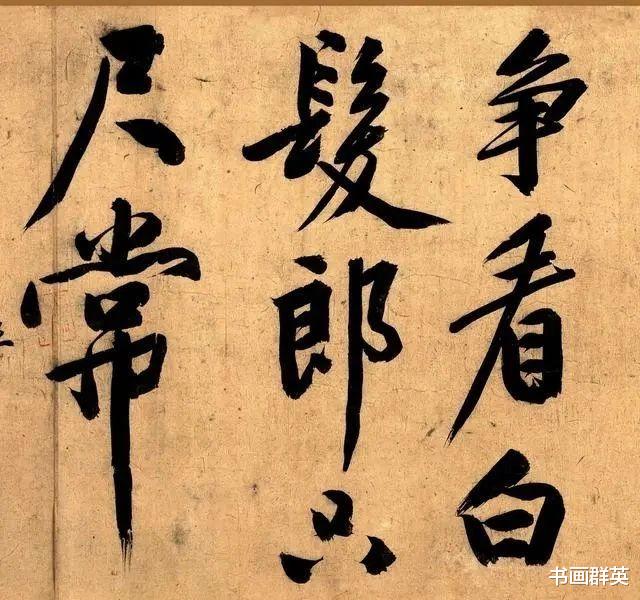 争看白
髮郎只
尺常
书画群英